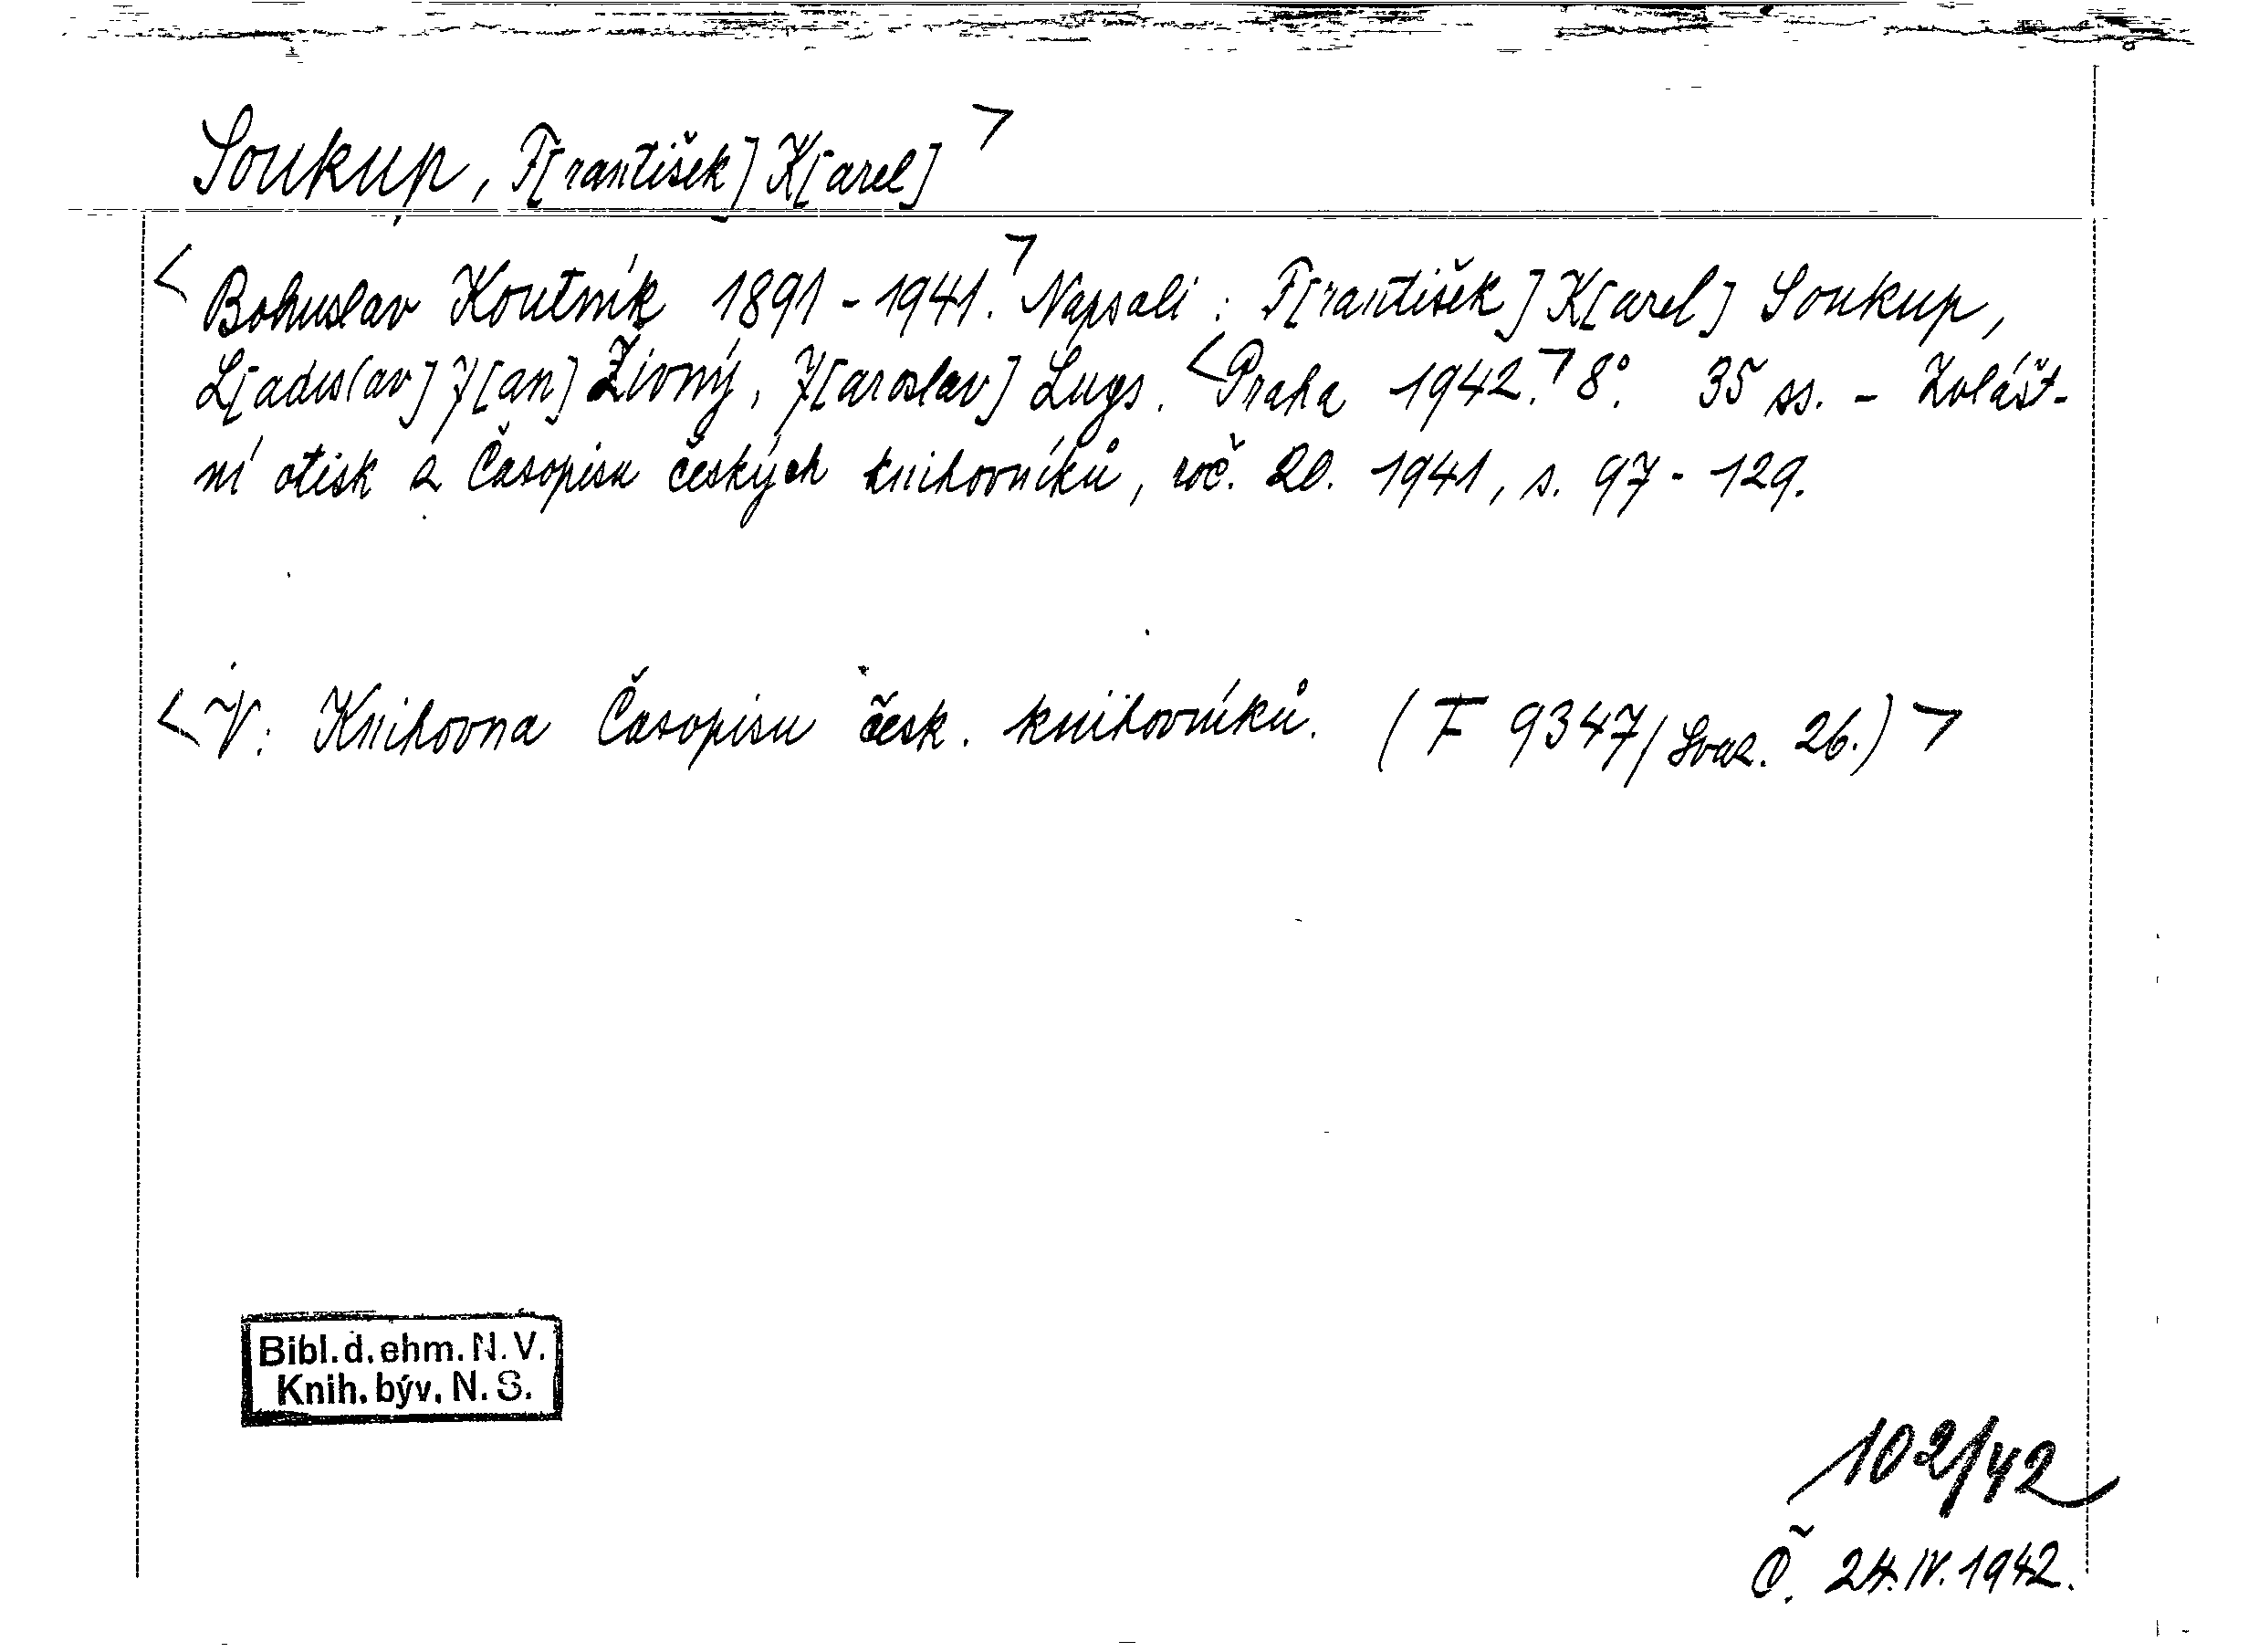 Soukup, F[rantišek] K[arel] ┐
< Bohuslav Koutník 1891-1941. ┐ Napsali: F[rantišek] K[arel] Soukup,
L[adislav] J[an] Živný, J[aroslav] Lugs. < Praha 1942. ┐ 8°. 35 ss. - Zvlášt-
ní otisk z Časopisu českých knihovníků, roč. 20. 1941, s. 97-129.
< V: Knihovna Časopisu česk. knihovníků. (F 9347/Svaz. 26.) ┐
Bibl. d. ehm. N. V.
Knih. býv. N. S.
102/42
Č. 24.IV.1942.